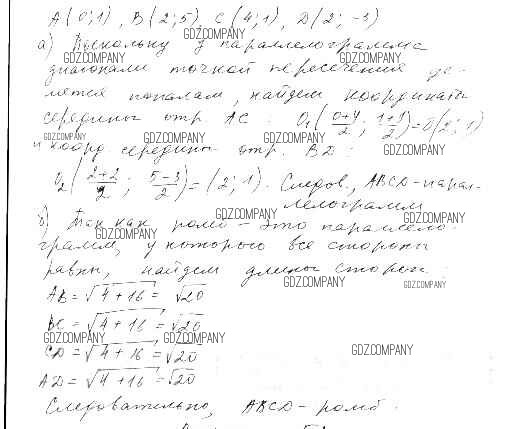 A(0;1), B(2;5), C(4;1), D(2;-3)
GDZ.COMPANY
а) Поскольку у параллелограмма
GDZ.COMPANY GDZ.COMPANY
диагонали точкой пересечения де-
лятся пополам, найдем координаты
середины отр. AC: O₁((0+4)/2; (1+1)/2)=O(2;1)
GDZ.COMPANY GDZ.COMPANY GDZ.COMPANY
и коорд середины отр. BD:
GDZ.COMPANY
O₂((2+2)/2; (5-3)/2)=(2;1). Следов., ABCD-парал-
лелограмм
GDZ.COMPANY GDZ.COMPANY
б) Так как ромб - это параллело-
GDZ.COMPANY
грамм, у которого все стороны
равны, найдем длины сторон:
GDZ.COMPANY GDZ.COMPANY
AB=√(4+16)=√20
BC=√(4+16)=√20
GDZ.COMPANY GDZ.COMPANY
CD=√(4+16)=√20
GDZ.COMPANY
AD=√(4+16)=√20
Следовательно, ABCD-ромб.